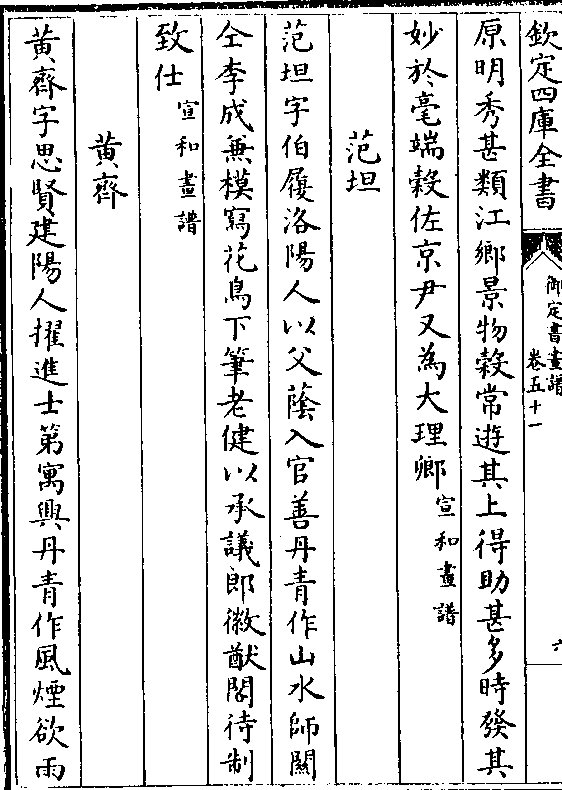 欽定四庫全書
御定書畫譜
卷五十一
六
原明秀甚類江鄉景物榖常遊其上得助甚多時發其
妙於毫端榖佐京尹又為大理卿宣和畫譜
范坦
范坦字伯履洛陽人以父蔭入官善丹青作山水師關
仝李成兼模寫花鳥下筆老健以承議郎徽猷閣待制
致仕宣和畫譜
黃齊
黃齊字思賢建陽人擢進士第寓興丹青作風煙欲雨